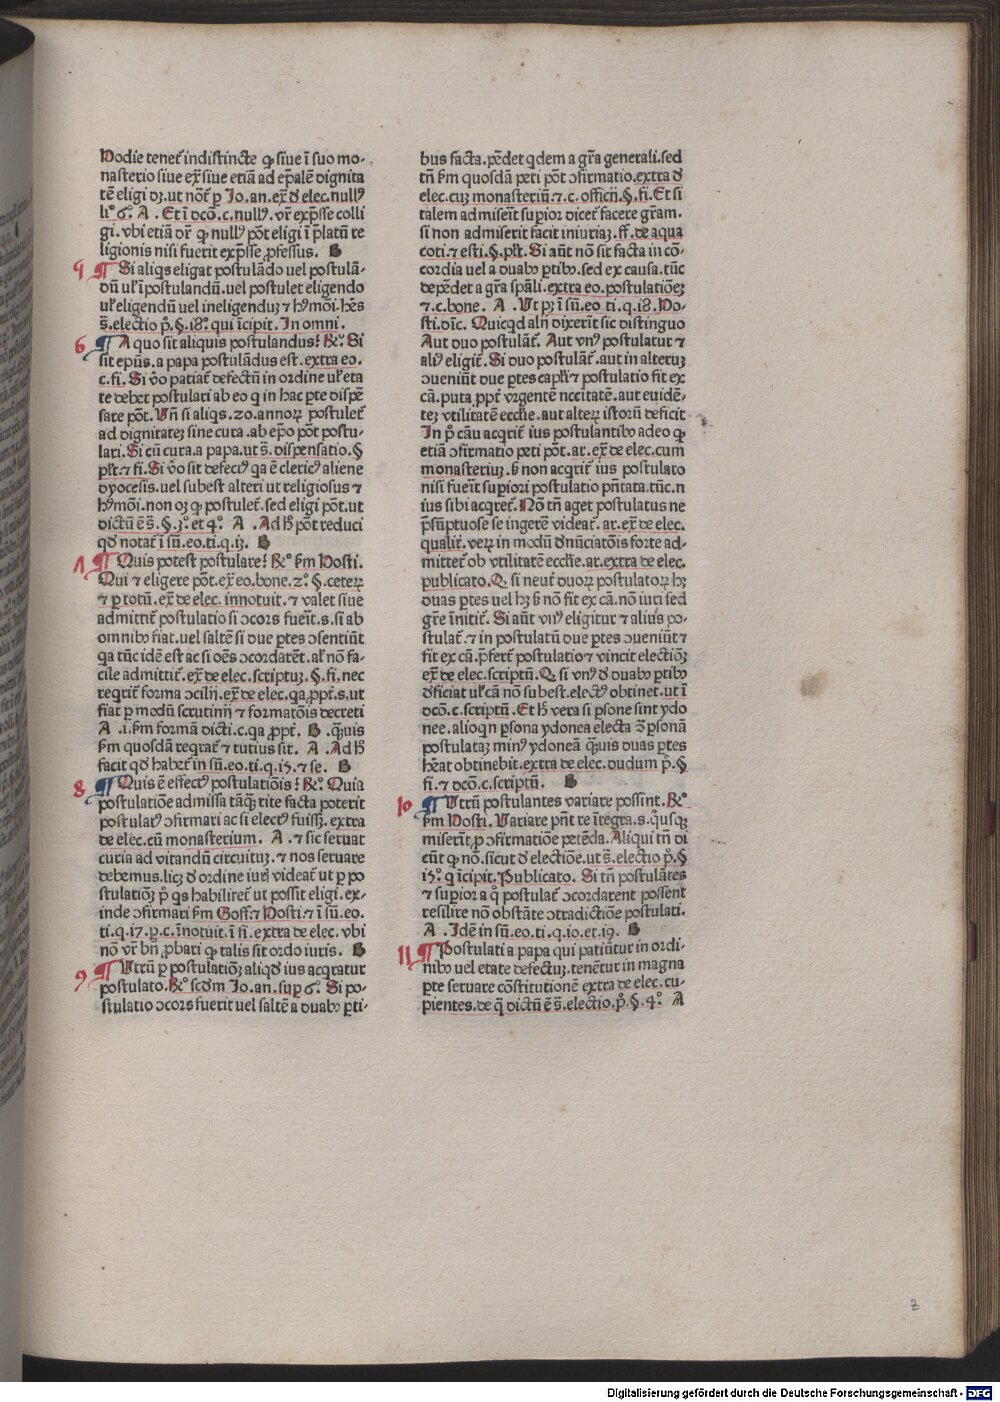 Hodie tenet᷑ indistincte ꝙ siue ī suo mo-
nasterio siue ex̄ siue etiā ad ep̄alē dignita
tē eligi dꝫ.ut nōt᷑ ꝑ Jo.an.ex̄ đ elec.nullꝰ
li.º 6.º A . Et ī dcō.c.nullꝰ. vr̄ exp̄sse colli
gi.vbi etiā dr̄ ꝙ nullꝰ pōt eligi ī p̄latū re
ligionis nisi fuerit exp̄sse ꝓfessus. B
¶ Si aliqs eligat postulādo uel postulā-
dū ul̓ ī postulandū.uel postulet eligendo
ul̓ eligendū uel ineligenduꝫ ⁊ hꝰmōi.hēs
s̄.electio p̄.§.18.º qui īcipit.In omni.
6 ¶ A quo sit aliquis postulandus? R̄.º Si
sit ep̄us.a papa postulādus est.extra eo.
c.fi. Si v̄o patiat᷑ defectū in ordine ul̓ eta
te debet postulari ab eo q in hac ꝑte dispē
sare pōt. Vn̄ si aliqs.20.annoꝝ postulet᷑
ad dignitateꝫ sine cura.ab ep̄o pōt postu-
lari.Si cū cura.a papa.ut s̄.dispensatio.§
pl̓t.⁊ fi.Si v̄o sit defectꝰ qa ē clericꝰ aliene
dyocesis.uel subest alteri ut religiosus ⁊
hꝰmōi.non oꝫ ꝙ postulet᷑.sed eligi pōt.ut
dictū ē s̄.§.3.º et 4.º A . Ad h̄ pōt reduci
qd̄ notat᷑ ī sū.eo.ti.q.13. B
¶ Quis potest postulare? R̄.º ẜm Hosti.
Qui ⁊ eligere pōt.ex̄.eo.bone.2.º §.ceteꝝ
⁊ ꝑ totū.ex̄.de elec.innotuit.⁊ valet siue
admittit᷑ postulatio si ↄcors fuerit.s.si ab
omnibꝰ fiat.uel saltē si due ꝑtes ↄsentiūt
qa tūc idē est ac si oēs ↄcordarēt.al̓ nō fa-
cile admittit᷑.ex̄.de elec.scriptuꝫ.§.fi.nec
reqrit᷑ forma ↄcilij.ex̄.de elec.qa ꝓpt᷑.s.ut
fiat ꝑ modū scrutinij ⁊ formatōis decreti
A .i.ẜm formā dicti.c.qa ꝓpt᷑. B .qͣuis
ẜm quosdā reqrat᷑ ⁊ tutius sit. A .Ad h̄
facit qd̄ habet᷑ in sū.eo.ti.q.15.⁊ se. B
8 ¶ Quis ē effectꝰ postulatiōis? R̄.º Quia
postulatiōe admissa tāqꝫ rite facta poterit
postulatꝰ ↄfirmari ac si electꝰ fuisꝫ.extra
de elec.cū monasterium. A .⁊ sic seruat
curia ad vitandū circuituꝫ.⁊ nos seruare
debemus.licꝫ đ ordine iurꝭ videat᷑ ut ꝑ po
stulatiōꝫ p̄ qs habiliret᷑ ut possit eligi.ex-
inde ↄfirmari ẜm Goff.⁊ Hosti.⁊ ī sū.eo.
ti.q.17.ꝑ.c.īnotuit.ī fi.extra de elec.vbi
nō vr̄ bn̄ ꝓbari ꝙ talis sit ordo iuris. B
9 ¶ Vtrū ꝑ postulatiōꝫ aliqđ ius acqratur
postulato.R̄.º scđm Jo.an.suꝑ 6.º Si po-
stulatio ↄcors fuerit uel saltē a duabꝰ ꝑti-
bus facta.pēdet qdem a gr̄a generali.sed
tn̄ ẜm quosdā peti pōt ↄfirmatio.extra đ
elec.cuꝫ monasteriū.⁊.c.officij.§.fi.Et si
talem admiserit suꝑior dicet᷑ facere gr̄am.
si non admiserit facit iniuriaꝫ.ff.de aqua
coti.⁊ esti.§.pl̓t. Si aūt nō sit facta in cō-
cordia uel a duabꝰ ꝑtibꝰ.sed ex causa.tūc
depēdet a gr̄a sp̄ali.extra eo.postulatiōeꝫ
⁊.c.bone. A .Vt pꝫ ī sū.eo ti.q.18.Ho-
sti.dīc. Quicqd alij dixerīt sic distinguo
Aut duo postulāt᷑. Aut vnꝰ postulatur ⁊
aliꝰ eligit᷑.Si duo postulāt᷑.aut in alteruꝫ
ↄueniūt due ꝑtes capl̓i ⁊ postulatio fit ex
cā.puta ꝓpt᷑ vrgentē nc̄citatē.aut euidē-
teꝫ vtilitatē ecclīe.aut alteꝝ istoꝝ deficit
In p̄ cāu acqrit᷑ ius postulantibꝰ adeo ꝙ
etiā ↄfirmatio peti pōt.ar.ex̄.de elec.cum
monasteriuꝫ.ẜ non acqrit᷑ ius postulato
nisi fuerit suꝑiori postulatio p̄ntata.tūc.n
ius sibi acqret᷑. Nō tn̄ aget postulatus ne
p̄sūptuose se ingerē videat᷑.ar.ex̄ de elec.
qualit᷑.veꝝ in modū đnūciatōis forte ad-
mittet᷑ ob vtilitatē ecclīe.ar.extra de elec.
publicato.Q. si neut᷑ duoꝝ postulatoꝝ hꝫ
duas ꝑtes uel hꝫ ẜ nō fit ex cā.nō iuri sed
gr̄e īnitit᷑. Si aūt vnꝰ eligitur ⁊ alius po-
stulat᷑.⁊ in postulatū due ꝑtes ↄueniūt ⁊
fit ex cā.p̄fert᷑ postulatio ⁊ vincit electiōꝫ
ex̄ de elec.scriptū.Q. si vnꝰ đ duabꝰ ꝑtibꝰ
đficiat ul̓ cā nō subest.electꝰ obtinet.ut ī
dcō.c.scriptū.Et h̄ vera si ꝑsone sint ydo
nee.alioqn ꝑsona ydonea electa ↄ̄ ꝑsonā
postulataꝫ minꝰ ydoneā qͣuis duas ꝑtes
hēat obtinebit.extra de elec.dudum p̄.§
fi.⁊ dcō.c.scriptū. B
10 ¶ Vtrū postulantes variare possint.R̄.º
ẜm Hosti.Variare pn̄t re ītegra.s.qͦusqꝫ
miserīt᷑ ꝓ ↄfirmatiōe petēda.Aliqui tn̄ di
cūt ꝙ nō.sicut đ electiōe.ut s̄.electio p̄.§
15.º q īcipit.Publicato. Si tn̄ postulātes
⁊ suꝑior a qͦ postulat᷑ ↄcordarent possent
resilire nō obstāte ↄtradictiōe postulati.
A .Idē in sū.eo.ti.q.10.et.19. B
11 ¶ Postulati a papa qui patiūtur in ordi-
nibꝰ uel etate defectuꝫ.tenētur in magna
ꝑte seruare cōstitutionē extra de elec.cu-
pientes.de q̄ dictū ē s̄.electio.p̄.§.4.º A
Digitalisierung gefördert durch die Deutsche Forschungsgemeinschaft - DFG